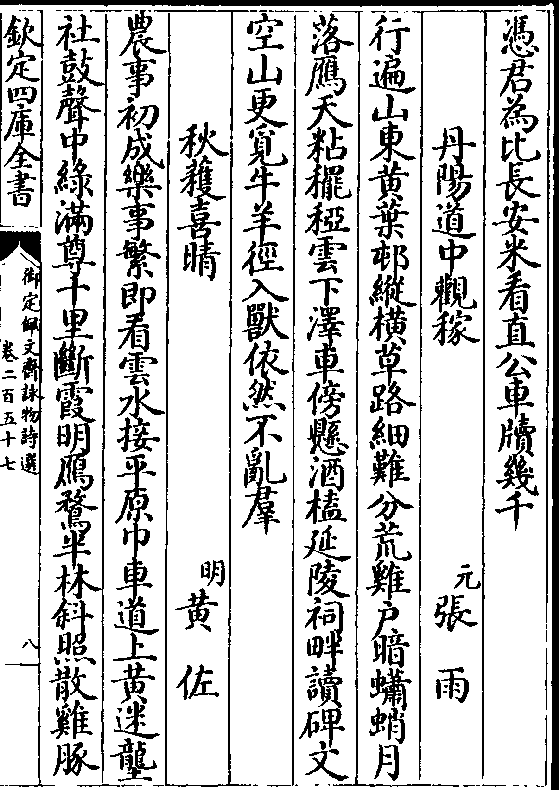 憑君為比長安米看直公車牘幾千
丹陽道中觀稼　元張雨
行遍山東黄葉邨縱横草路細難分荒雞户暗蠨蛸月
落鴈天粘䆉稏雲下澤車傍懸酒榼延陵祠畔讀碑文
空山更覓牛羊徑入獸依然不亂羣
秋穫喜晴　明黄佐
農事初成樂事繁即看雲水接平原巾車道上黄迷壟
社鼓聲中綠滿尊千里斷霞明鴈鶩半林斜照散雞豚
欽定四庫全書
御定佩文齋詠物詩選
卷二百五十七
八